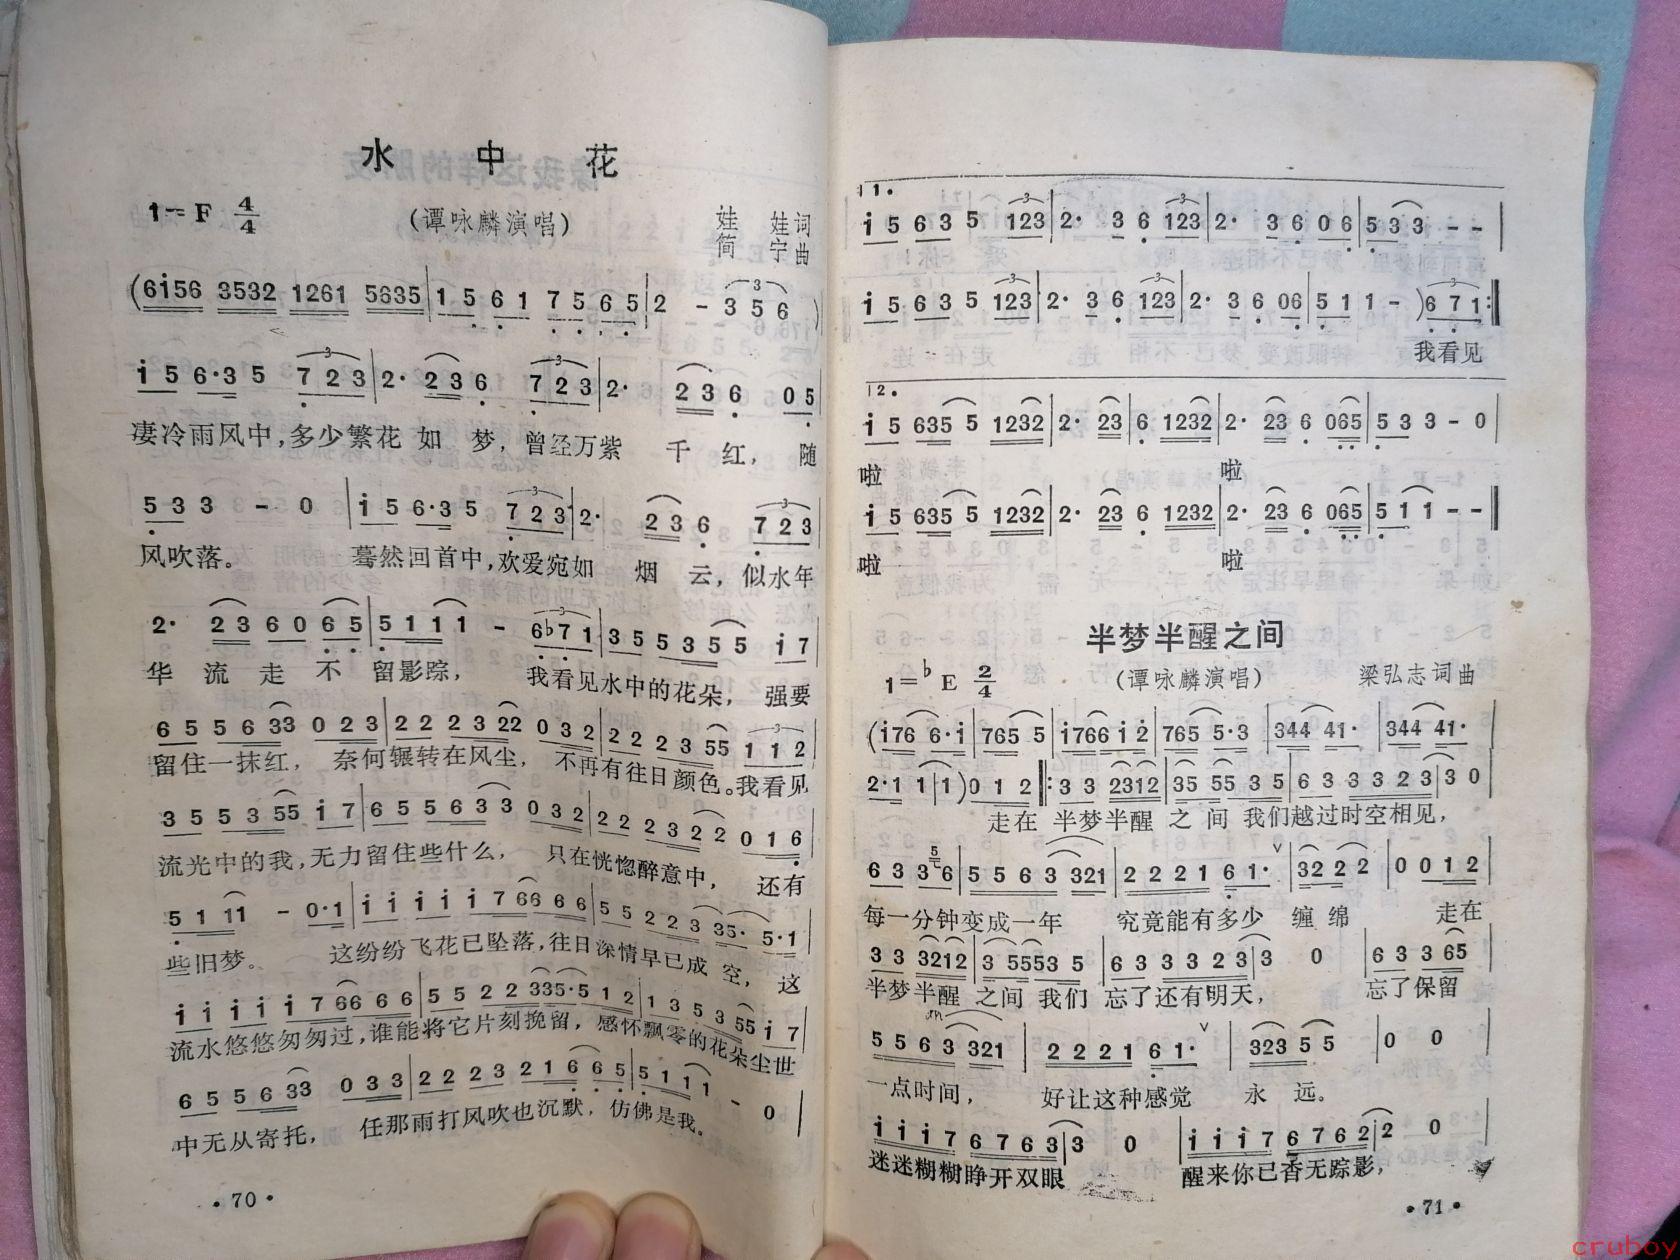 水 中 花
1=F 4/4 (谭咏麟演唱) 娃 娃词
简 宁曲
(6i56 3532 1261 5635 | 1 5 6 1 7 5 6 5 | 2 - 3 5 6 )
i 5 6·3 5 7 2 3 | 2· 2 3 6 7 2 3 | 2· 2 3 6 0 5
凄冷雨风中,多少繁花 如 梦,曾经万紫 千 红, 随
5 3 3 - 0 | i 5 6·3 5 7 2 3 | 2· 2 3 6 7 2 3
风吹落。 蓦然回首中,欢爱宛如 烟 云,似水年
2· 2 3 6 0 6 5 | 5 1 1 1 - 6 ♭7 1 | 3 5 5 3 5 5 5 i 7
华 流 走 不 留影踪, 我看见水中的花朵, 强要
6 5 5 5 6 3 3 0 2 3 | 2 2 2 2 3 2 2 0 3 2 | 2 2 2 3 5 5 1 1 2
留住一抹红, 奈何辗转在风尘, 不再有往日颜色。我看见
3 5 5 3 5 5 i 7 | 6 5 5 6 3 3 0 3 2 | 2 2 2 3 2 2 0 1 6
流光中的我,无力留住些什么, 只在恍惚醉意中, 还有
5 1 1 1 - 0·1 | i i i i i 7 6 6 6 6 6 | 5 5 2 2 3 3 5· 5·1
些旧梦。 这纷纷飞花已坠落,往日深情早已成 空, 这
i i i i i 7 6 6 6 6 | 5 5 2 2 3 3 5·5 1 2 | 1 3 5 3 5 5 i 7
流水悠悠匆匆过,谁能将它片刻挽留,感怀飘零的花朵尘世
6 5 5 6 3 3 0 3 3 | 2 2 2 3 2 1 6 6 5 | 5 1 1 1 - 0
中无从寄托, 任那雨打风吹也沉默,仿佛是我。
·70·
1.
i 5 6 3 5 123 | 2· 3 6 123 | 2· 3 6 0 6 | 5 3 3 - -
i 5 6 3 5 123 | 2· 3 6 123 | 2· 3 6 06 | 5 1 1 - ) 6 7 1 :‖
我看见
2.
i 5 635 5 1232 | 2· 23 | 6 1232 | 2· 23 6 065 | 5 3 3 - 0
啦 啦
i 5 635 5 1232 | 2· 23 6 1232 | 2· 23 6 065 | 5 1 1 - -
啦 啦
半梦半醒之间
1=♭E 2/4 (谭咏麟演唱) 梁弘志词曲
(i76 6·i | 765 5 | i766 i 2 | 765 5·3 | 344 41· | 344 41·
2·1 1 | 1 ) 0 1 2 ‖: 3 3 2312 | 35 55 3 5 | 6 3 3 3 2 3 | 3 3 0
走在 半梦半醒 之 间 我们越过时空相见,
6 3 3 6 | 5 5 6 3 321 | 2 2 2 1 6 1· | 32 2 2 | 0 0 1 2
每一分钟变成一年 究竟能有多少 缠 绵 走在
3 3 3212 | 3 5553 5 | 6 3 3 3 2 3 | 3 0 | 6 3 3 65
半梦半醒 之间 我们 忘了还有明天, 忘了保留
5 5 6 3 321 | 2 2 2 1 6 1· | 323 5 5 | 0 0
一点时间, 好让这种感觉 永 远。
i i i 7 6 7 6 3 | 3 0 | i i i 7 6 7 6 2 | 2 0
迷迷糊糊睁开双眼 醒来你已杳无踪影,
·71·
cruboy